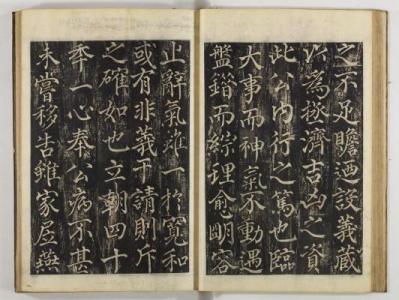 之不足贍迺設義藏
以為拯濟吉凶之資
此公内行之篤也臨
大事而神氣不動遇
盤錯而綜理愈明容
止辭氣雖一於寬和
或有非義干請則斥
之確如也立朝四十
秊一心奉公病不甚
未嘗移告雖家居燕